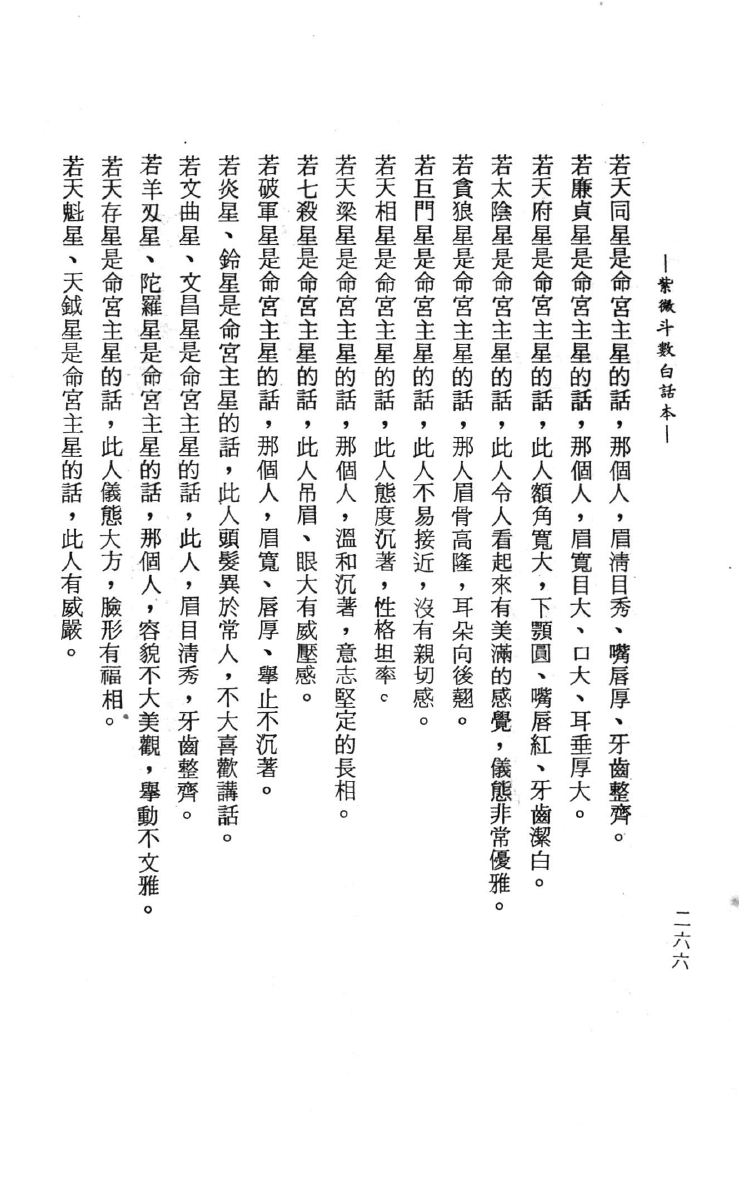 —紫微斗數白話本—
二六六
若天同星是命宮主星的話，那個人，眉淸目秀、嘴唇厚、牙齒整齊。
若廉貞星是命宮主星的話，那個人，眉寬目大、口大、耳垂厚大。
若天府星是命宮主星的話，此人額角寬大，下顎圓、嘴唇紅、牙齒潔白。
若太陰星是命宮主星的話，此人令人看起來有美滿的感覺，儀態非常優雅。
若貪狼星是命宮主星的話，那人眉骨高隆，耳朵向後翹。
若巨門星是命宮主星的話，此人不易接近，沒有親切感。
若天相星是命宮主星的話，此人態度沉著，性格坦率。
若天梁星是命宮主星的話，那個人，溫和沉著，意志堅定的長相。
若七殺星是命宮主星的話，此人吊眉、眼大有威壓感。
若破軍星是命宮主星的話，那個人，眉寬、唇厚、舉止不沉著。
若炎星、鈴星是命宮主星的話，此人頭髮異於常人，不大喜歡講話。
若文曲星、文昌星是命宮主星的話，此人，眉目淸秀，牙齒整齊。
若羊刄星、陀羅星是命宮主星的話，那個人，容貌不大美觀，舉動不文雅。
若天存星是命宮主星的話，此人儀態大方，臉形有福相。
若天魁星、天鉞星是命宮主星的話，此人有威嚴。